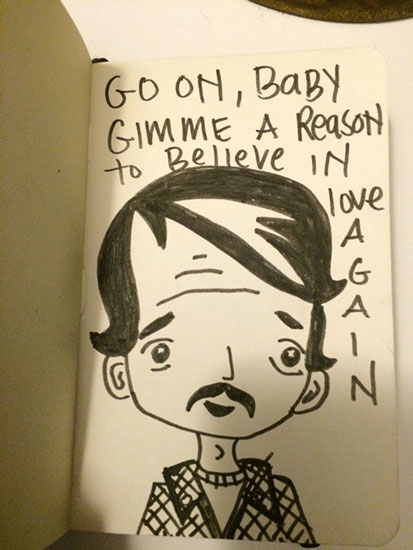 GO ON, BABY
GIMME A ReASON
to Believe IN
love
A
G
A
I
N